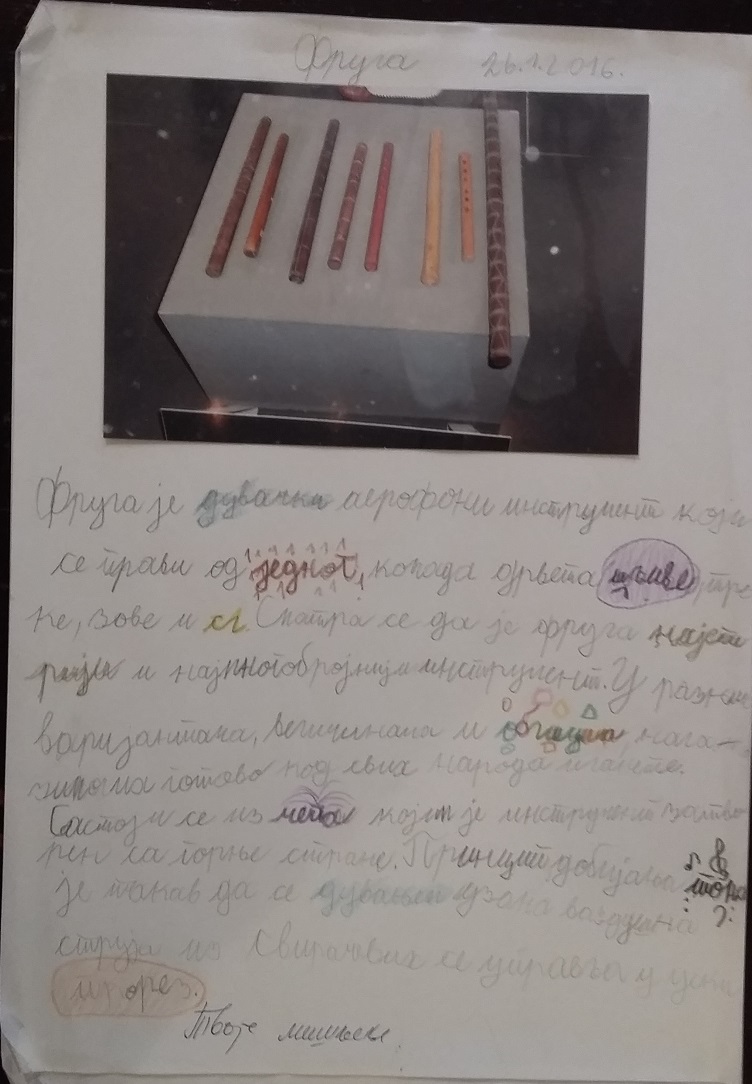 Фруга 26.1.2016.
Фруга је дувачки аерофони инструмент који
се прави од једног, комада дрвета шљиве,
зове и сл. Сматра се да је фруга најста
рији и најмногобројнији инструмент. У разним
варијантама, величинама и облицима, нала-
зимо га готово код свих народа планете.
Састоји се из којим је инструмент затво
рен са горње стране. Принцип добијања тона
је такав да се дувањем узана ваздушна
струја из се управља у
прорез.
Твоје мишљење